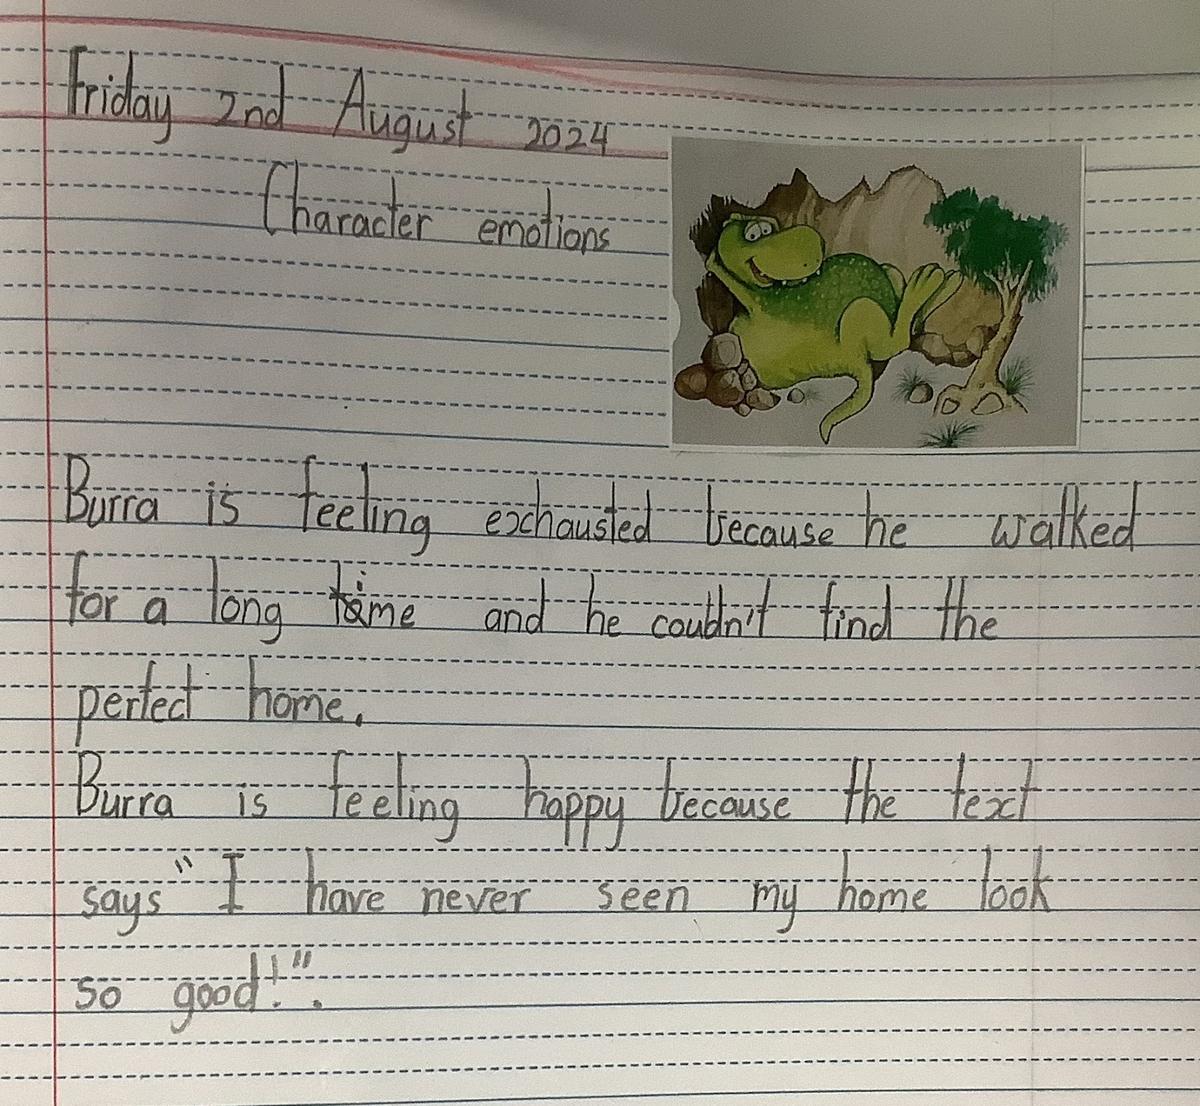 Friday 2nd August 2024
Character emotions
Burra is feeling exhausted because he walked
for a long time and he couldn't find the
perfect home.
Burra is feeling happy because the text
says "I have never seen my home look
so good!".